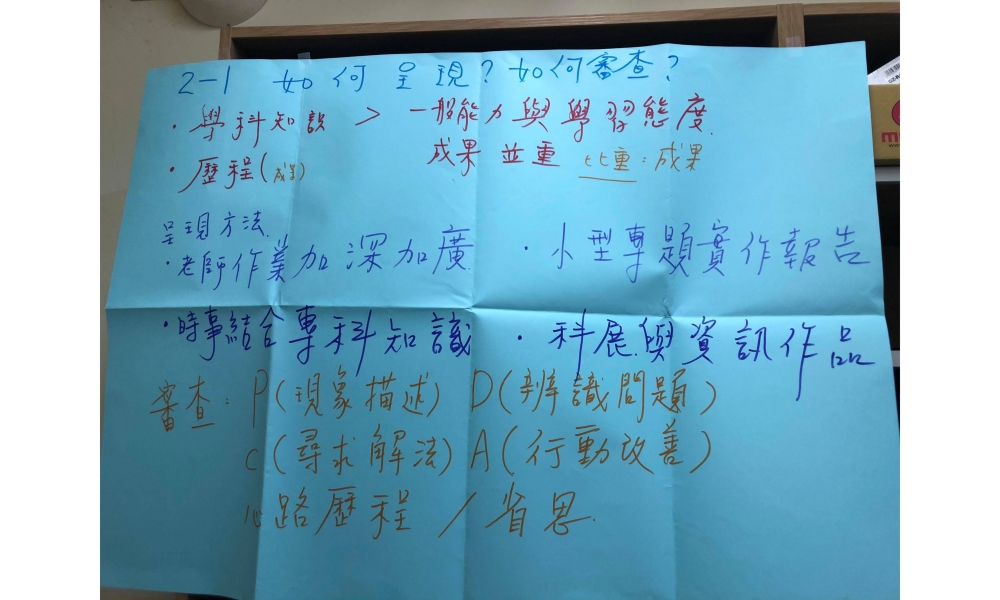 2-1 如何呈現？如何審查？
·學科知識 > 一般能力與學習態度
·歷程(成果) 成果並重 比重:成果
呈現方法
·老師作業加深加廣 ·小型專題實作報告
·時事結合專科知識 ·科展與資訊作品
審查: P(現象描述) D(辨識問題)
C(尋求解法) A(行動改善)
心路歷程/省思.